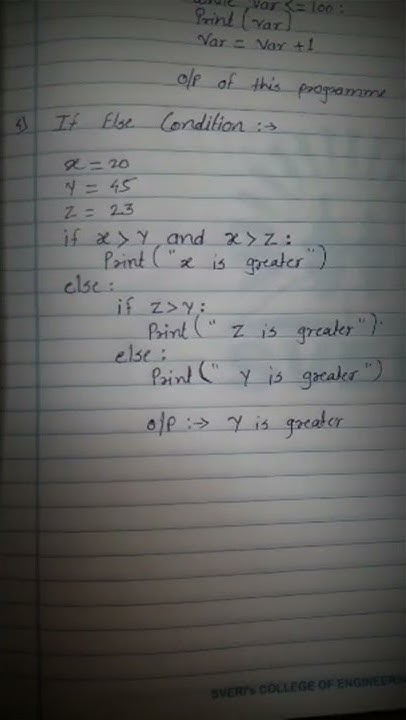 while var <= 100:
Print (var)
Var = Var + 1
o/p of this programme
If Else Condition :→
x = 20
Y = 45
Z = 23
if x > Y and x > Z :
Print ("x is greater")
else :
if Z > Y :
Print (" Z is greater").
else :
Print (" Y is greater")
o/p :→ Y is greater
SVERI's COLLEGE OF ENGINEERIN